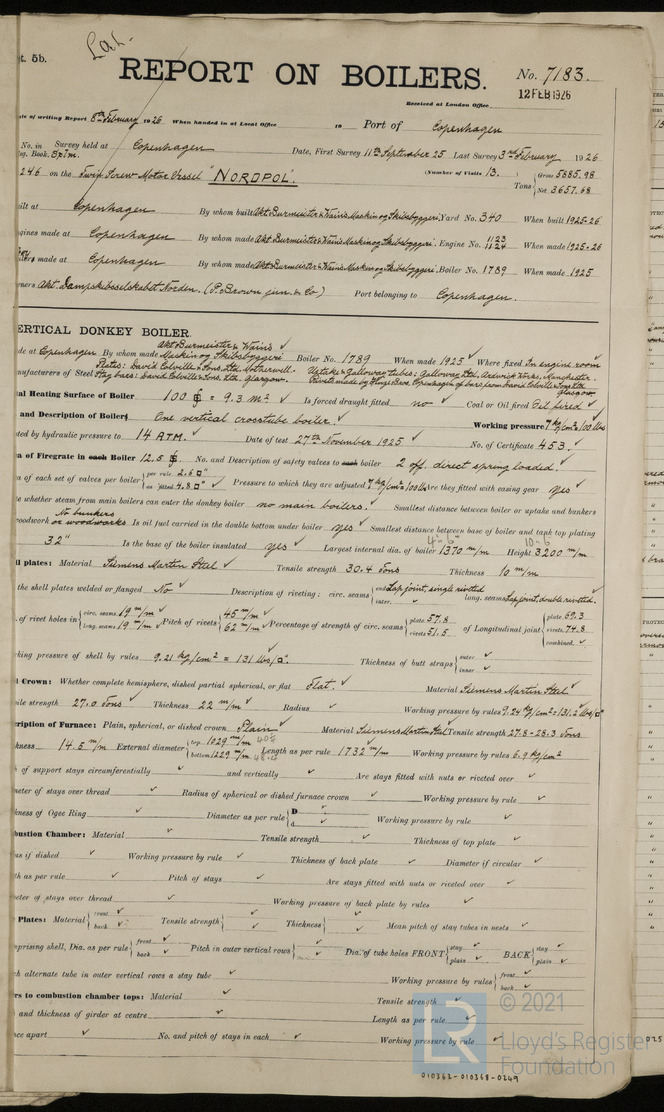 Lat.
t. 5b.
REPORT ON BOILERS.
No. 7183.
12 FEB 1926
Received at London Office
te of writing Report 8th February 1926 When handed in at Local Office 19 Port of Copenhagen
No. in Survey held at Copenhagen Date, First Survey 11th September 25 Last Survey 3rd February 1926
eg. Book. (Number of Visits 13.
246 on the Twin Screw Motor Vessel "NORDPOL". Tons { Gross 5685.98
Net 3657.68
uilt at Copenhagen By whom built Akt. Burmeister & Wain's Maskin og Skibsbyggeri Yard No. 340 When built 1925-26
ngines made at Copenhagen By whom made Akt. Burmeister & Wain's Maskin og Skibsbyggeri. Engine No. 1123 1124 When made 1925-26
oilers made at Copenhagen By whom made Akt. Burmeister & Wain's Maskin og Skibsbyggeri. Boiler No. 1789 When made 1925
wners Akt. Dampskibsselskabet Norden. (P. Brown jun. & Co) Port belonging to Copenhagen.
ERTICAL DONKEY BOILER.
de at Copenhagen By whom made Akt. Burmeister & Wain's Maskin og Skibsbyggeri Boiler No. 1789 When made 1925 Where fixed In engine room
nufacturers of Steel Plates: David Colville & Sons. Ltd. Motherwell. Stay bars: David Colville & Sons. Ltd. Glasgow. Uptake & Galloway tubes: Galloway Ltd, Manchester.
al Heating Surface of Boiler 100 = 9.3 m² Is forced draught fitted no Coal or Oil fired Oil fired
and Description of Boilers One vertical crosstube boiler. Working pressure 7 kg/cm² 100 lbs
ted by hydraulic pressure to 14 ATM. Date of test 27th November 1925 No. of Certificate 453.
a of Firegrate in each Boiler 12.5 No. and Description of safety valves to each boiler 2 off. direct spring loaded.
a of each set of valves per boiler { per rule 2.6 □" as fitted 4.8 □" Pressure to which they are adjusted 7 kg/cm² 100 lbs Are they fitted with easing gear yes
te whether steam from main boilers can enter the donkey boiler no main boilers. Smallest distance between boiler or uptake and bunkers
woodwork or woodworks No bunkers Is oil fuel carried in the double bottom under boiler yes Smallest distance between base of boiler and tank top plating
32" Is the base of the boiler insulated yes Largest internal dia. of boiler 1370 m/m 4'-6" Height 3200 m/m 10-6
l plates: Material Siemens Martin Steel Tensile strength 30.4 Tons Thickness 10 m/m
the shell plates welded or flanged No Description of riveting: circ. seams { end Lap joint, single riveted inter. long. seams Lap joint, double riveted.
. of rivet holes in { circ. seams 19 m/m long. seams 19 m/m Pitch of rivets { 45 m/m 62 m/m Percentage of strength of circ. seams { plate 57.8 rivets 51.5 of Longitudinal joint { plate 69.3 rivets 74.8 combined.
king pressure of shell by rules 9.21 kg/cm² = 131 lbs/□" Thickness of butt straps { outer inner
l Crown: Whether complete hemisphere, dished partial spherical, or flat Flat. Material Siemens Martin Steel
ile strength 27.0 Tons Thickness 22 m/m Radius Working pressure by rules 9.24 kg/cm² = 131.2 lbs/□"
cription of Furnace: Plain, spherical, or dished crown Plain Material Siemens Martin Steel Tensile strength 27.8-28.3 Tons
kness 14.5 m/m External diameter { top 1029 m/m bottom 1229 m/m Length as per rule 1732 m/m Working pressure by rules 6.9 kg/cm²
h of support stays circumferentially and vertically Are stays fitted with nuts or riveted over
meter of stays over thread Radius of spherical or dished furnace crown Working pressure by rule
kness of Ogee Ring Diameter as per rule { D d Working pressure by rule
bustion Chamber: Material Tensile strength Thickness of top plate
us if dished Working pressure by rule Thickness of back plate Diameter if circular
th as per rule Pitch of stays Are stays fitted with nuts or riveted over
eter of stays over thread Working pressure of back plate by rules
Plates: Material { front back Tensile strength { Thickness { Mean pitch of stay tubes in nests
prising shell, Dia. as per rule { front back Pitch in outer vertical rows { Dia. of tube holes FRONT { stay plain BACK { stay plain
ch alternate tube in outer vertical rows a stay tube Working pressure by rules { front back
ers to combustion chamber tops: Material Tensile strength
and thickness of girder at centre Length as per rule
nce apart No. and pitch of stays in each Working pressure by rule
© 2021
Lloyd's Register
Foundation
LR
010362-010368-0249